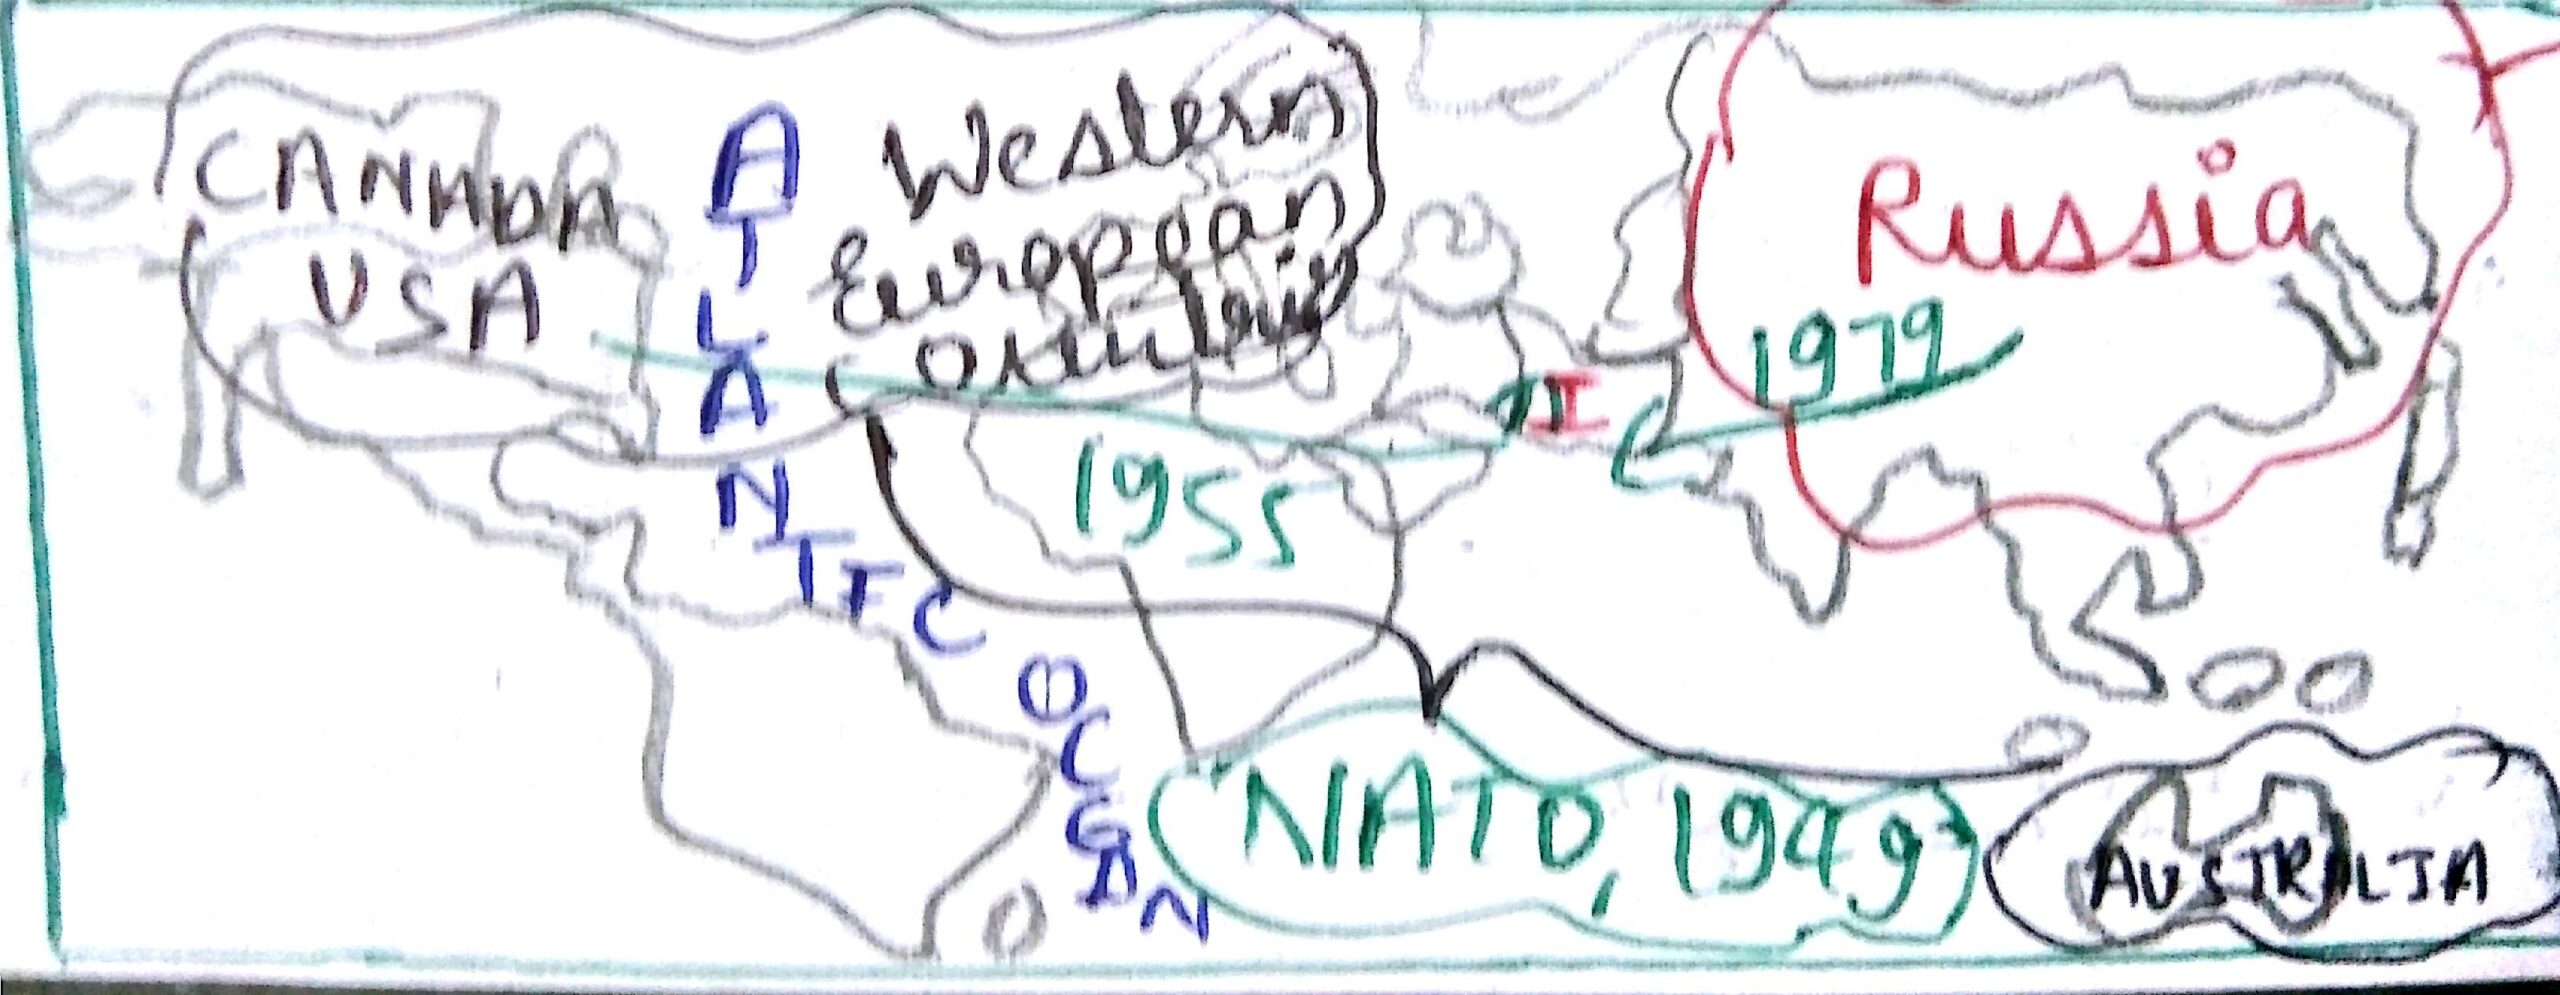 CANADA
USA
ATLANTIC OCEAN
Western
European
Russia
1979
1955
NATO, 1949
AUSTRALIA